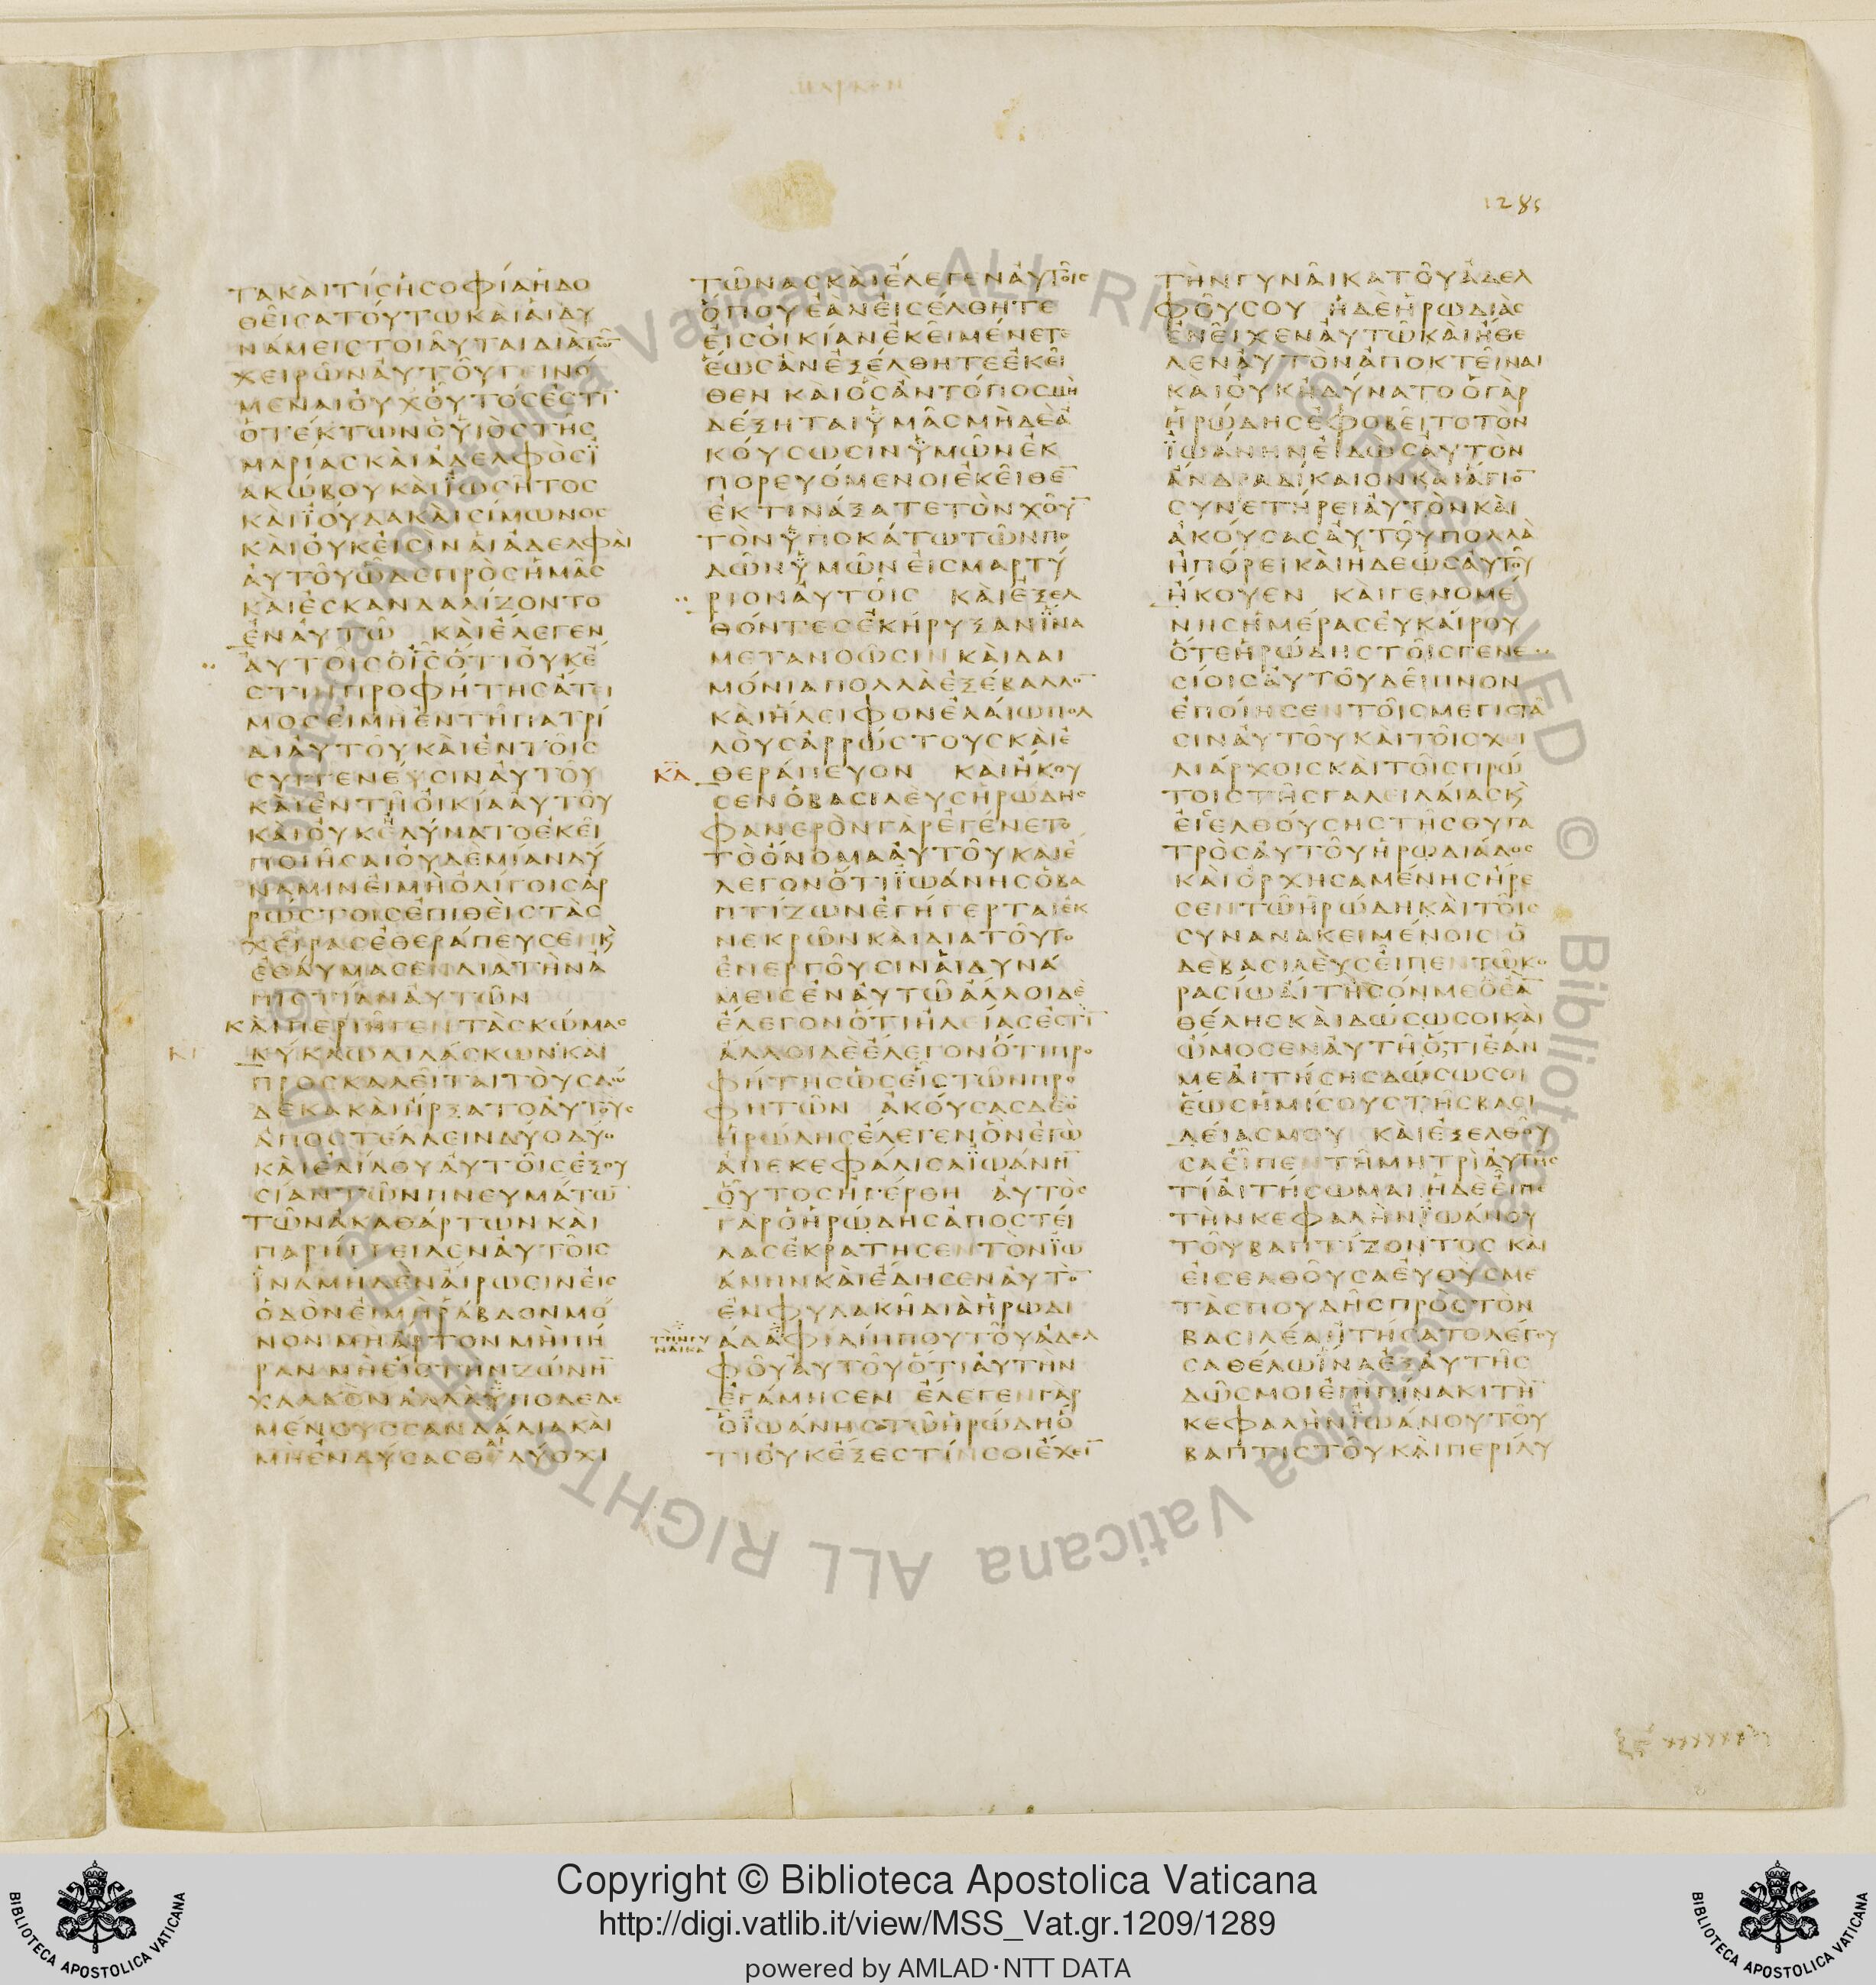 1285
ΤΑΚΑΙΤΙϹΗϹΟΦΙΑΗΔΟ
ΘΕΙϹΑΤΟΥΤΩΚΑΙΑΙΔΥ
ΝΑΜΕΙϹΤΟΙΑΥΤΑΙΔΙΑΤΩ̅
ΧΕΙΡΩΝΑΥΤΟΥΓΕΙΝΟ
ΜΕΝΑΙΟΥΧΟΥΤΟϹΕϹΤΙ̅
ΟΤΕΚΤΩΝΟΥΙΟϹΤΗϹ
ΜΑΡΙΑϹΚΑΙΑΔΕΛΦΟϹΪ
ΑΚΩΒΟΥΚΑΙΪΩϹΗΤΟϹ
ΚΑΙΪΟΥΔΑΚΑΙϹΙΜΩΝΟϹ
ΚΑΙΟΥΚΕΙϹΙΝΑΙΑΔΕΛΦΑΙ
ΑΥΤΟΥΩΔΕΠΡΟϹΗΜΑϹ
ΚΑΙΕϹΚΑΝΔΑΛΙΖΟΝΤΟ
ΕΝΑΥΤΩ ΚΑΙΕΛΕΓΕΝ
ΑΥΤΟΙϹΟΙ̅Ϲ̅ΟΤΙΟΥΚΕ
ϹΤΙΝΠΡΟΦΗΤΗϹΑΤΕΙ
ΜΟϹΕΙΜΗΕΝΤΗΠΑΤΡΙ
ΔΙΑΥΤΟΥΚΑΙΕΝΤΟΙϹ
ϹΥΓΓΕΝΕΥϹΙΝΑΥΤΟΥ
ΚΑΙΕΝΤΗΟΙΚΙΑΑΥΤΟΥ
ΚΑΙΟΥΚΕΔΥΝΑΤΟΕΚΕΙ
ΠΟΙΗϹΑΙΟΥΔΕΜΙΑΝΔΥ
ΝΑΜΙΝΕΙΜΗΟΛΙΓΟΙϹΑΡ
ΡΩϹΤΟΙϹΕΠΙΘΕΙϹΤΑϹ
ΧΕΙΡΑϹΕΘΕΡΑΠΕΥϹΕΝΚ̀
ΕΘΑΥΜΑϹΕΝΔΙΑΤΗΝΑ
ΠΙϹΤΙΑΝΑΥΤΩΝ
ΚΑΙΠΕΡΙΗΓΕΝΤΑϹΚΩΜΑϹ
ΚΥΚΛΩΔΙΔΑϹΚΩΝΚΑΙ
ΠΡΟϹΚΑΛΕΙΤΑΙΤΟΥϹΔΩ
ΔΕΚΑΚΑΙΗΡΞΑΤΟΑΥΤΟΥϹ
ΑΠΟϹΤΕΛΛΕΙΝΔΥΟΔΥΟ
ΚΑΙΕΔΙΔΟΥΑΥΤΟΙϹΕΞΟΥ
ϹΙΑΝΤΩΝΠΝΕΥΜΑΤΩ̅
ΤΩΝΑΚΑΘΑΡΤΩΝΚΑΙ
ΠΑΡΗΓΓΕΙΛΕΝΑΥΤΟΙϹ
ΪΝΑΜΗΔΕΝΑΙΡΩϹΙΝΕΙϹ
ΟΔΟΝΕΙΜΗΡΑΒΔΟΝΜΟ
ΝΟΝΜΗΑΡΤΟΝΜΗΠΗ
ΡΑΝΜΗΕΙϹΤΗΝΖΩΝΗ̅
ΧΑΛΚΟΝΑΛΛΑΫΠΟΔΕΔΕ
ΜΕΝΟΥϹϹΑΝΔΑΛΙΑΚΑΙ
ΜΗΕΝΔΥϹΑϹΘΑΙΔΥΟΧΙ
ΤΩΝΑϹΚΑΙΕΛΕΓΕΝΑΥΤΟΙϹ
ΟΠΟΥΕΑΝΕΙϹΕΛΘΗΤΕ
ΕΙϹΟΙΚΙΑΝΕΚΕΙΜΕΝΕΤΕ
ΕΩϹΑΝΕΞΕΛΘΗΤΕΕΚΕΙ
ΘΕΝ ΚΑΙΟϹΑΝΤΟΠΟϹΜΗ
ΔΕΞΗΤΑΙΫΜΑϹΜΗΔΕΑ
ΚΟΥϹΩϹΙΝΫΜΩΝΕΚ
ΠΟΡΕΥΟΜΕΝΟΙΕΚΕΙΘΕ̅
ΕΚΤΙΝΑΞΑΤΕΤΟΝΧΟΥ̅
ΤΟΝΫΠΟΚΑΤΩΤΩΝΠΟ
ΔΩΝΫΜΩΝΕΙϹΜΑΡΤΥ
ΡΙΟΝΑΥΤΟΙϹ ΚΑΙΕΞΕΛ
ΘΟΝΤΕϹΕΚΗΡΥΞΑΝΪΝΑ
ΜΕΤΑΝΟΩϹΙΝΚΑΙΔΑΙ
ΜΟΝΙΑΠΟΛΛΑΕΞΕΒΑΛΛΟ̅
ΚΑΙΗΛΕΙΦΟΝΕΛΑΙΩΠΟΛ
ΛΟΥϹΑΡΡΩϹΤΟΥϹΚΑΙΕ
Κ̅Α̅ ΘΕΡΑΠΕΥΟΝ ΚΑΙΗΚΟΥ
ϹΕΝΟΒΑϹΙΛΕΥϹΗΡΩΔΗϹ
ΦΑΝΕΡΟΝΓΑΡΕΓΕΝΕΤΟ
ΤΟΟΝΟΜΑΑΥΤΟΥΚΑΙΕ
ΛΕΓΟΝΟΤΙΪΩΑΝΗϹΟΒΑ
ΠΤΙΖΩΝΕΓΗΓΕΡΤΑΙΕΚ
ΝΕΚΡΩΝΚΑΙΔΙΑΤΟΥΤΟ
ΕΝΕΡΓΟΥϹΙΝΑΙΔΥΝΑ
ΜΕΙϹΕΝΑΥΤΩΑΛΛΟΙΔΕ
ΕΛΕΓΟΝΟΤΙΗΛΕΙΑϹΕϹΤΙ̅
ΑΛΛΟΙΔΕΕΛΕΓΟΝΟΤΙΠΡΟ
ΦΗΤΗϹΩϹΕΙϹΤΩΝΠΡΟ
ΦΗΤΩΝ ΑΚΟΥϹΑϹΔΕΟ
ΗΡΩΔΗϹΕΛΕΓΕΝΟΝΕΓΩ
ΑΠΕΚΕΦΑΛΙϹΑΪΩΑΝΗ̅
ΟΥΤΟϹΗΓΕΡΘΗ ΑΥΤΟϹ
ΓΑΡΟΗΡΩΔΗϹΑΠΟϹΤΕΙ
ΛΑϹΕΚΡΑΤΗϹΕΝΤΟΝΪΩ
ΑΝΗΝΚΑΙΕΔΗϹΕΝΑΥΤΟ̅
ΕΝΦΥΛΑΚΗΔΙΑΗΡΩΔΙ
ΤΗΝΓΥ
ΝΑΙΚΑ
ΑΔΑΦΙΛΙΠΠΟΥΤΟΥΑΔΕΛ
ΦΟΥΑΥΤΟΥΟΤΙΑΥΤΗΝ
ΕΓΑΜΗϹΕΝ ΕΛΕΓΕΝΓΑΡ
ΟΪΩΑΝΗϹΤΩΗΡΩΔΗΟ
ΤΙΟΥΚΕΞΕϹΤΙΝϹΟΙΕΧΕΙ̅
ΤΗΝΓΥΝΑΙΚΑΤΟΥΑΔΕΛ
ΦΟΥϹΟΥ ΗΔΕΗΡΩΔΙΑϹ
ΕΝΕΙΧΕΝΑΥΤΩΚΑΙΗΘΕ
ΛΕΝΑΥΤΟΝΑΠΟΚΤΕΙΝΑΙ
ΚΑΙΟΥΚΗΔΥΝΑΤΟΟΓΑΡ
ΗΡΩΔΗϹΕΦΟΒΕΙΤΟΤΟΝ
ΪΩΑΝΗΝΕΙΔΩϹΑΥΤΟΝ
ΑΝΔΡΑΔΙΚΑΙΟΝΚΑΙΑΓΙΟ̅
ϹΥΝΕΤΗΡΕΙΑΥΤΟΝΚΑΙ
ΑΚΟΥϹΑϹΑΥΤΟΥΠΟΛΛΑ
ΗΠΟΡΕΙΚΑΙΗΔΕΩϹΑΥΤΟΥ
ΗΚΟΥΕΝ ΚΑΙΓΕΝΟΜΕ
ΝΗϹΗΜΕΡΑϹΕΥΚΑΙΡΟΥ
ΟΤΕΗΡΩΔΗϹΤΟΙϹΓΕΝΕ
ϹΙΟΙϹΑΥΤΟΥΔΕΙΠΝΟΝ
ΕΠΟΙΗϹΕΝΤΟΙϹΜΕΓΙϹΤΑ
ϹΙΝΑΥΤΟΥΚΑΙΤΟΙϹΧΕΙ
ΛΙΑΡΧΟΙϹΚΑΙΤΟΙϹΠΡΩ
ΤΟΙϹΤΗϹΓΑΛΕΙΛΑΙΑϹΚ̀
ΕΙϹΕΛΘΟΥϹΗϹΤΗϹΘΥΓΑ
ΤΡΟϹΑΥΤΟΥΗΡΩΔΙΑΔΟϹ
ΚΑΙΟΡΧΗϹΑΜΕΝΗϹΗΡΕ
ϹΕΝΤΩΗΡΩΔΗΚΑΙΤΟΙϹ
ϹΥΝΑΝΑΚΕΙΜΕΝΟΙϹ Ο
ΔΕΒΑϹΙΛΕΥϹΕΙΠΕΝΤΩΚΟ
ΡΑϹΙΩΑΙΤΗϹΟΝΜΕΟΕΑ̅
ΘΕΛΗϹΚΑΙΔΩϹΩϹΟΙΚΑΙ
ΩΜΟϹΕΝΑΥΤΗΟΤΙΕΑΝ
ΜΕΑΙΤΗϹΗϹΔΩϹΩϹΟΙ
ΕΩϹΗΜΙϹΟΥϹΤΗϹΒΑϹΙ
ΛΕΙΑϹΜΟΥ ΚΑΙΕΞΕΛΘΟΥ
ϹΑΕΙΠΕΝΤΗΜΗΤΡΙΑΥΤΗϹ
ΤΙΑΙΤΗϹΩΜΑΙΗΔΕΕΙΠΕ
ΤΗΝΚΕΦΑΛΗΝΪΩΑΝΟΥ
ΤΟΥΒΑΠΤΙΖΟΝΤΟϹ ΚΑΙ
ΕΙϹΕΛΘΟΥϹΑΕΥΘΥϹΜΕ
ΤΑϹΠΟΥΔΗϹΠΡΟϹΤΟΝ
ΒΑϹΙΛΕΑΗΤΗϹΑΤΟΛΕΓΟΥ
ϹΑΘΕΛΩΪΝΑΕΞΑΥΤΗϹ
ΔΩϹΜΟΙΕΠΙΠΙΝΑΚΙΤΗ̅
ΚΕΦΑΛΗΝΪΩΑΝΟΥΤΟΥ
ΒΑΠΤΙϹΤΟΥΚΑΙΠΕΡΙΛΥ
Copyright © Biblioteca Apostolica Vaticana
http://digi.vatlib.it/view/MSS_Vat.gr.1209/1289
powered by AMLAD·NTT DATA
BIBLIOTECA APOSTOLICA VATICANA
BIBLIOTECA APOSTOLICA VATICANA
© Biblioteca Apostolica Vaticana ALL RIGHTS RESERVED